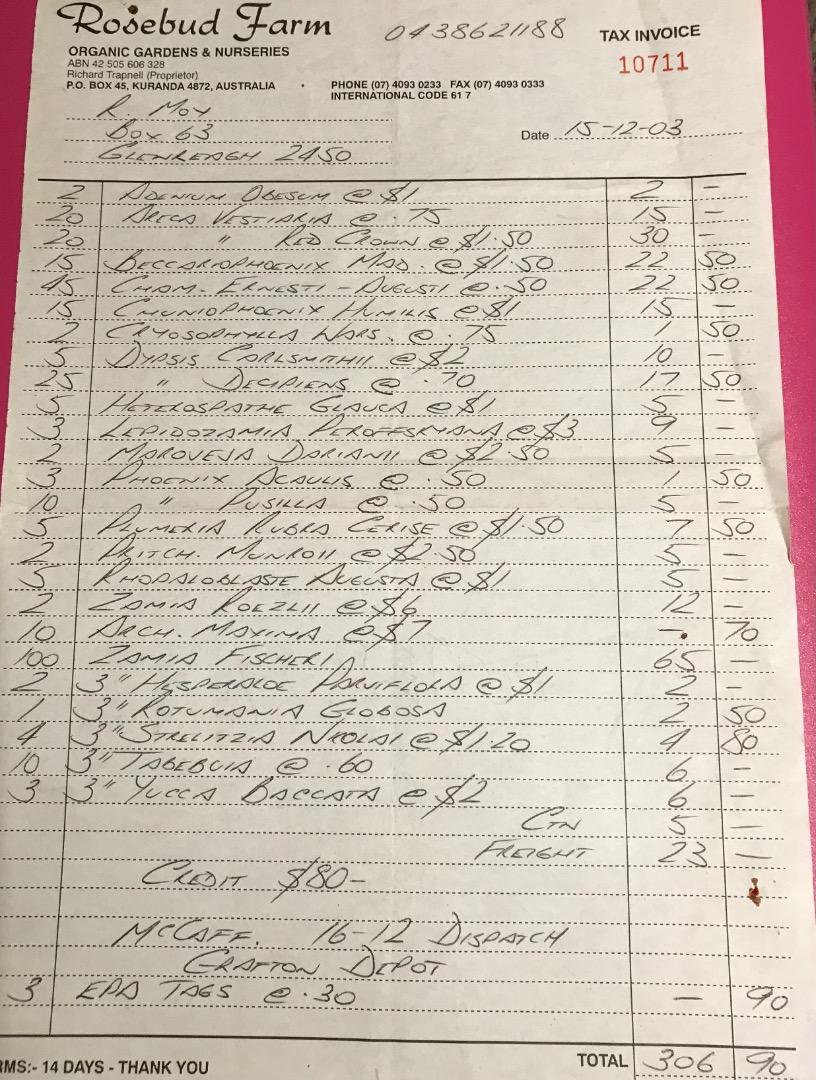 Rosebud Farm 0438621188 TAX INVOICE
ORGANIC GARDENS & NURSERIES 10711
ABN 42 505 606 328
Richard Trapnell (Proprietor)
P.O. BOX 45, KURANDA 4872, AUSTRALIA • PHONE (07) 4093 0233 FAX (07) 4093 0333
INTERNATIONAL CODE 61 7
R. Moy
Box 63 Date 15-12-03
GLENREAGH 2450
2 ADENIUM OBESUM @ $1 2 –
20 ARECA VESTIARIA @ .75 15 –
20 " RED CROWN @ $1.50 30 –
15 BECCARIOPHOENIX MAD. @ $1.50 22 50
45 CHAM. ERNESTI-AUGUSTI @ .50 22 50
15 CHUNIOPHOENIX HUMILIS @ $1 15 –
2 CRYOSOPHYLLA WARS. @ .75 1 50
5 DYPSIS CARLSMITHII @ $2 10 –
25 " DECIPIENS @ .70 17 50
5 HETEROSPATHE GLAUCA @ $1 5 –
3 LEPIDOZAMIA PEROFFSKYANA @ $3 9 –
2 MAROVEJA DARIANII @ $2.50 5 –
3 PHOENIX ACAULIS @ .50 1 50
10 " PUSILLA @ .50 5 –
5 PLUMERIA RUBRA CERISE @ $1.50 7 50
2 PRITCH. MUNROII @ $2.50 5 –
5 RHOPALOBLASTE AUGUSTA @ $1 5 –
2 ZAMIA ROEZLII @ $6 12 –
10 ARCH. MAXIMA @ $7 –. 70
100 ZAMIA FISCHERI 65 –
2 3" HESPERALOE PARVIFLORA @ $1 2 –
1 3" ROTUMANIA GLOBOSA 2 50
4 3" STRELITZIA NICOLAI @ $1.20 4 80
10 3" TABEBUIA @ .60 6 –
3 3" YUCCA BACCATA @ $2 6 –
CTN 5 –
FREIGHT 23 –
CREDIT $80–
McCAFF. 16-12 DISPATCH
GRAFTON DEPOT
3 EPA TAGS @ .30 – 90
RMS:- 14 DAYS - THANK YOU TOTAL 306 90